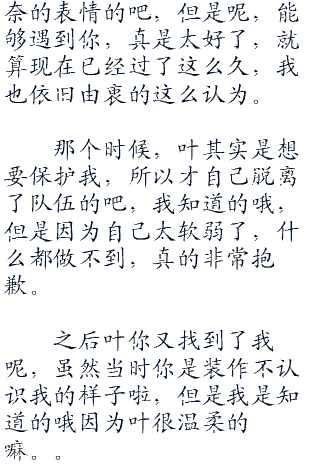 奈的表情的吧，但是呢，能
够遇到你，真是太好了，就
算现在已经过了这么久，我
也依旧由衷的这么认为。
那个时候，叶其实是想
要保护我，所以才自己脱离
了队伍的吧，我知道的哦，
但是因为自己太软弱了，什
么都做不到，真的非常抱
歉。
之后叶你又找到了我
呢，虽然当时你是装作不认
识我的样子啦，但是我是知
道的哦因为叶很温柔的
嘛。。